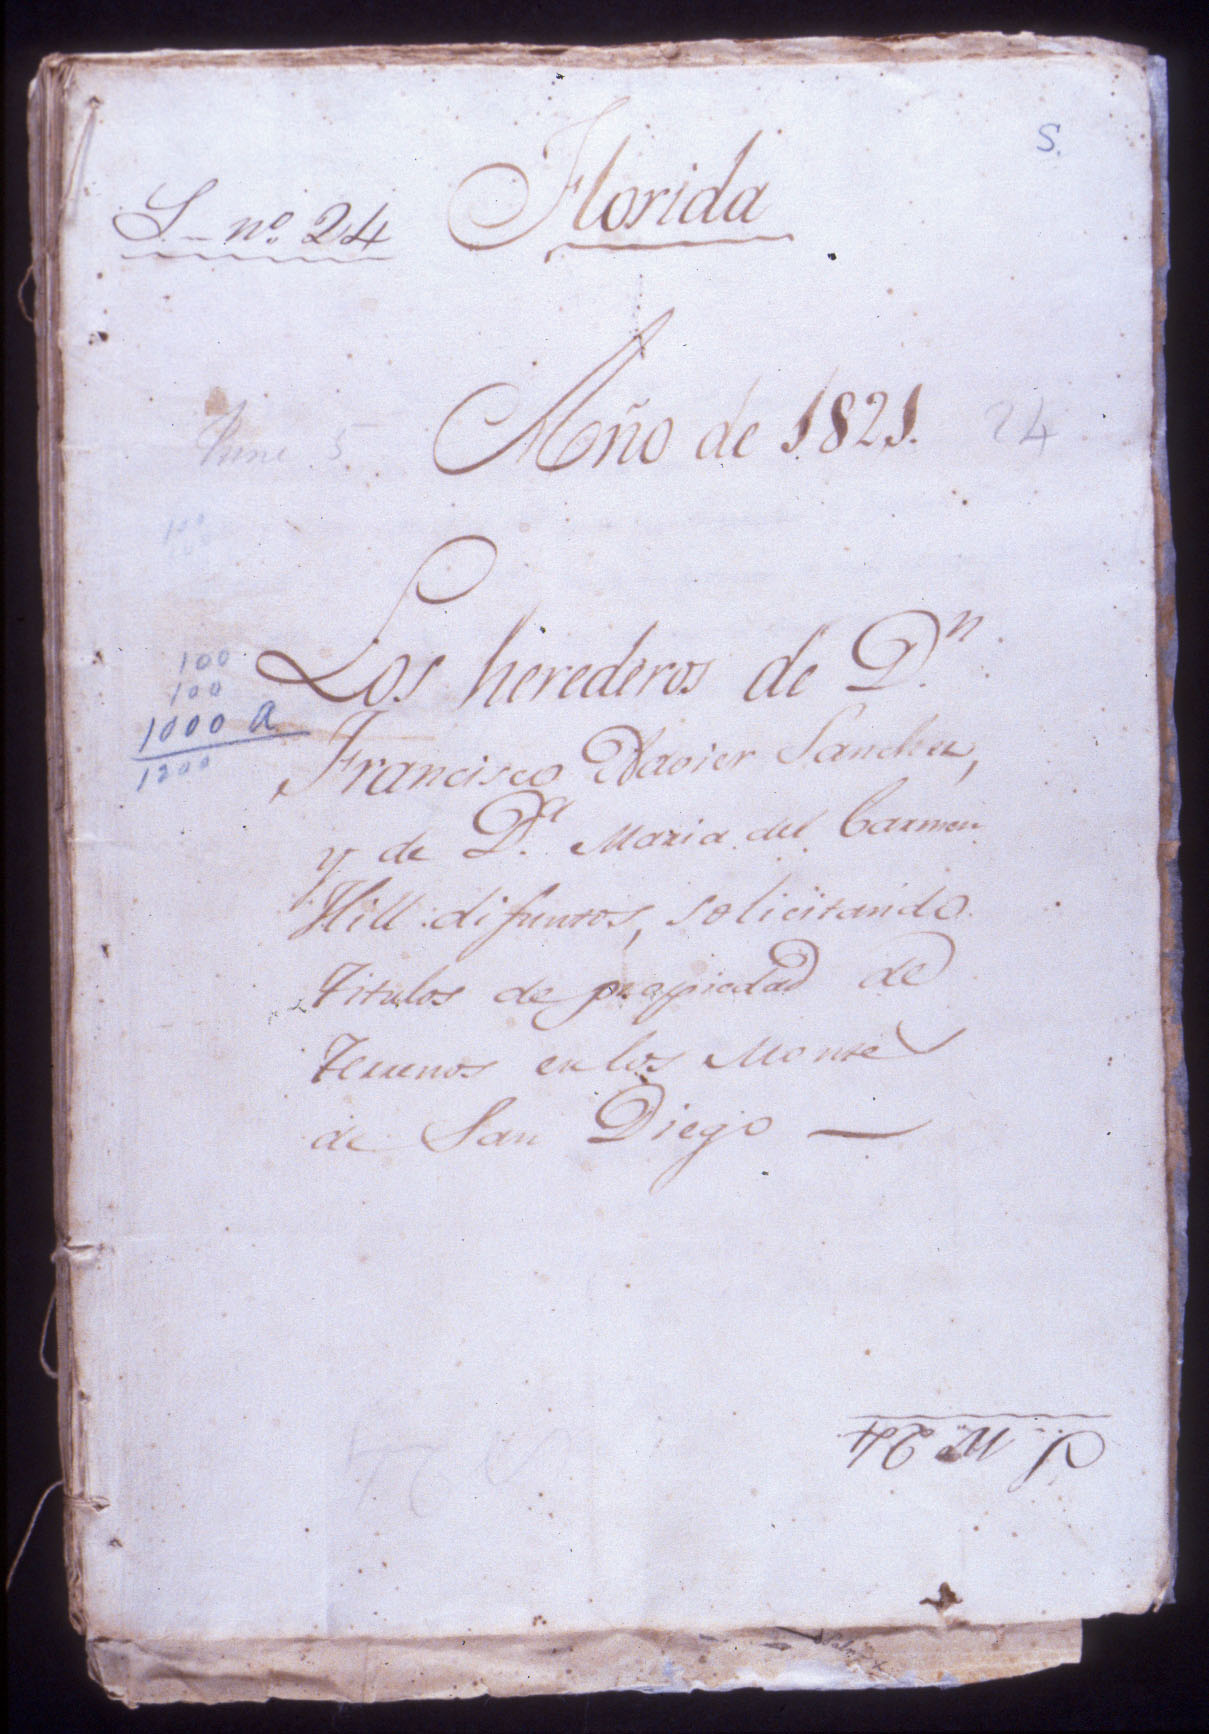 S.
Florida
S - nº. 24
Año de 1821.
24
June 5
100
100
100
100
1000 a
1200
Los herederos de Dn.
Francisco Xavier Sanchez,
y de Da. Maria del Carmen
Hill difuntos, solicitando
titulos de propiedad de
terrenos en los Montes
de San Diego —
S. Nº 24
24